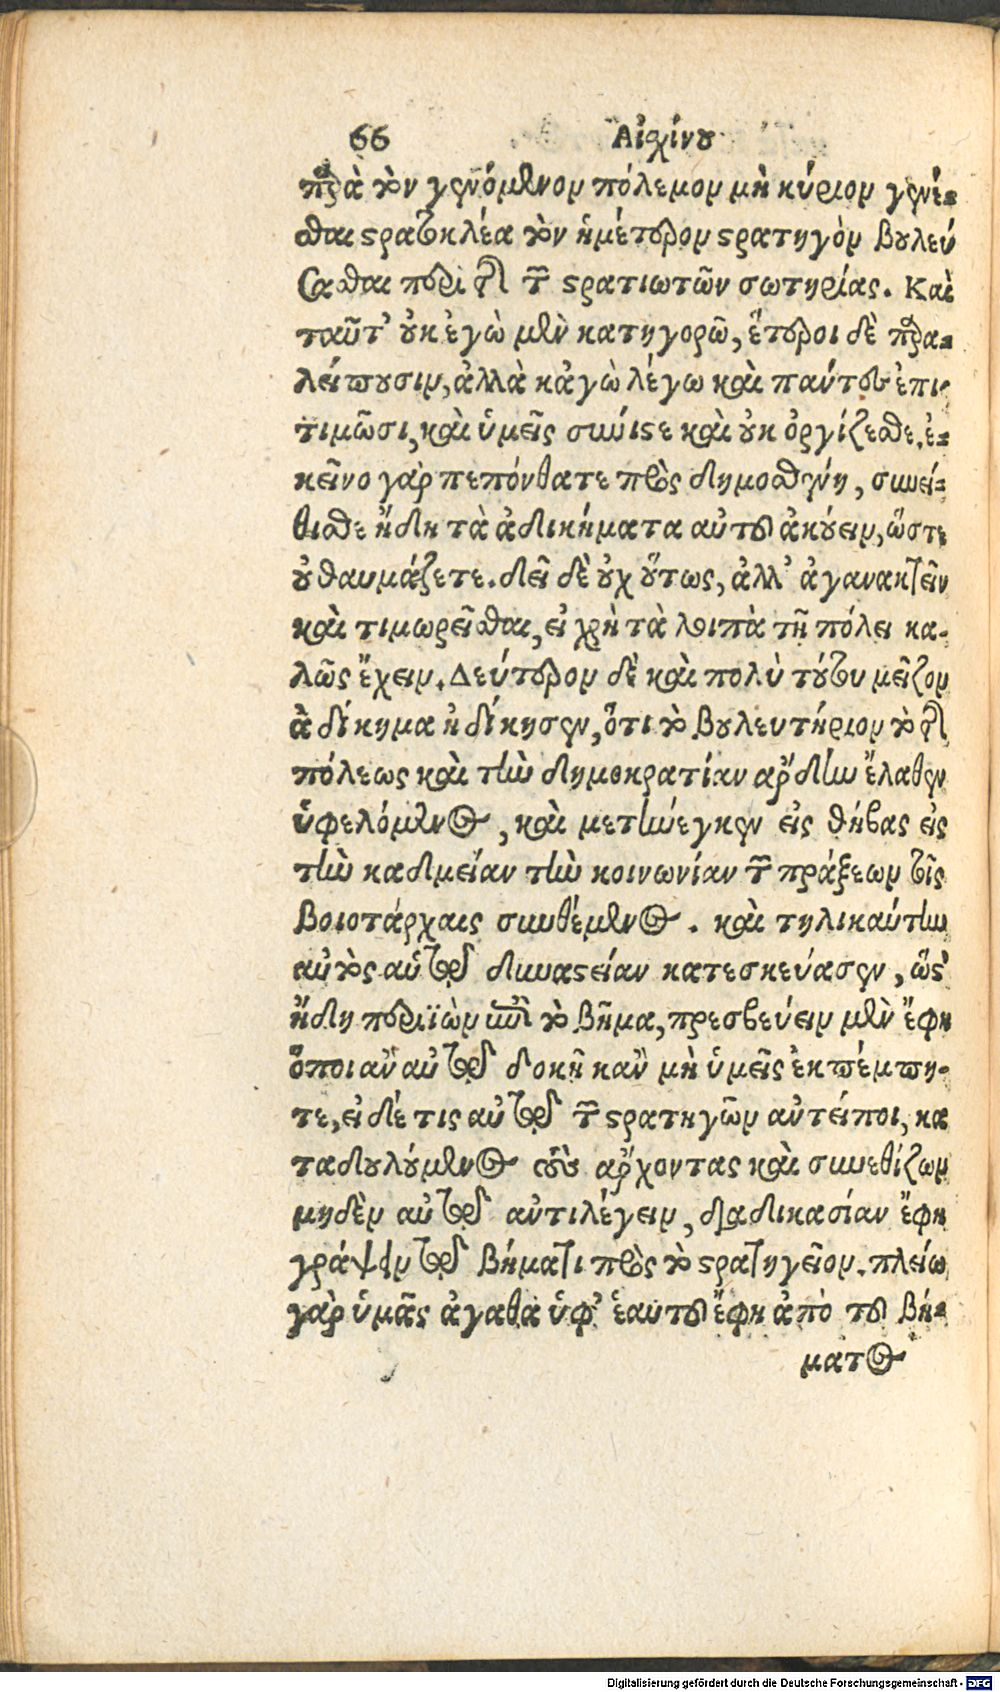 66 Αἰσχίνου
παρὰ τὸν γενόμενον πόλεμον μὴ κύριον γενέ-
σθαι στρατοκλέα τὸν ἡμέτερον στρατηγὸν βουλεύ
σασθαι περὶ τῆς τῶν στρατιωτῶν σωτηρίας. Καὶ
ταῦτ' οὐκ ἐγὼ μὲν κατηγορῶ, ἕτεροι δὲ παρα-
λείπουσιν, ἀλλὰ κἀγὼ λέγω καὶ πάντες ἐπι-
τιμῶσι, καὶ ὑμεῖς σύνιστε καὶ οὐκ ὀργίζεσθε. ἐ-
κεῖνο γὰρ πεπόνθατε πρὸς δημοσθένη, συνεί-
θισθε ἤδη τὰ ἀδικήματα αὐτοῦ ἀκούειν, ὥστε
οὐ θαυμάζετε. δεῖ δὲ οὐχ οὕτως, ἀλλ' ἀγανακτεῖν
καὶ τιμωρεῖσθαι, εἰ χρὴ τὰ λοιπὰ τῇ πόλει κα-
λῶς ἔχειν. Δεύτερον δὲ καὶ πολὺ τούτου μεῖζον
ἀδίκημα ἠδίκησεν, ὅτι τὸ βουλευτήριον τὸ τῆς
πόλεως καὶ τὴν δημοκρατίαν ἄρδην ἔλαθεν
ὑφελόμενος, καὶ μετήνεγκεν εἰς θήβας εἰς
τὴν καδμείαν τὴν κοινωνίαν τῶν πράξεων τοῖς
Βοιοτάρχαις συνθέμενος. καὶ τηλικαύτην
αὐτὸς αὑτῷ δυναστείαν κατεσκεύασεν, ὥστ'
ἤδη περιϊὼν ἐπὶ τὸ βῆμα, πρεσβεύειν μὲν ἔφη
ὅποι ἂν αὐτῷ δοκῇ κἂν μὴ ὑμεῖς ἐκπέμπη-
τε, εἰ δέ τις αὐτῷ τῶν στρατηγῶν ἀντείποι, κα
ταδουλούμενος τοὺς ἄρχοντας καὶ συνεθίζων
μηδὲν αὐτῷ ἀντιλέγειν, διαδικασίαν ἔφη
γράψειν τῷ βήματι πρὸς τὸ στρατηγεῖον. πλείω
γὰρ ὑμᾶς ἀγαθὰ ὑφ' ἑαυτοῦ ἔφη ἀπὸ τοῦ βή-
ματος
Digitalisierung gefördert durch die Deutsche Forschungsgemeinschaft - DFG